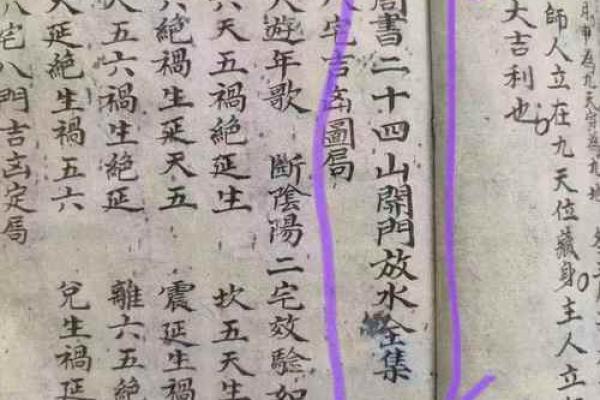 師人立在九天位藏身主人立
大吉利也
周書二十四山開門放水全集
宅吉凶圖局
遊年歌 斷陰陽二宅效驗如
六天五禍絕延生 坎五天生
六絕禍生延天五 震延生禍
五六禍生絕延 離六五絕
延絕生禍五六 兌生禍延
宅八門吉凶定局